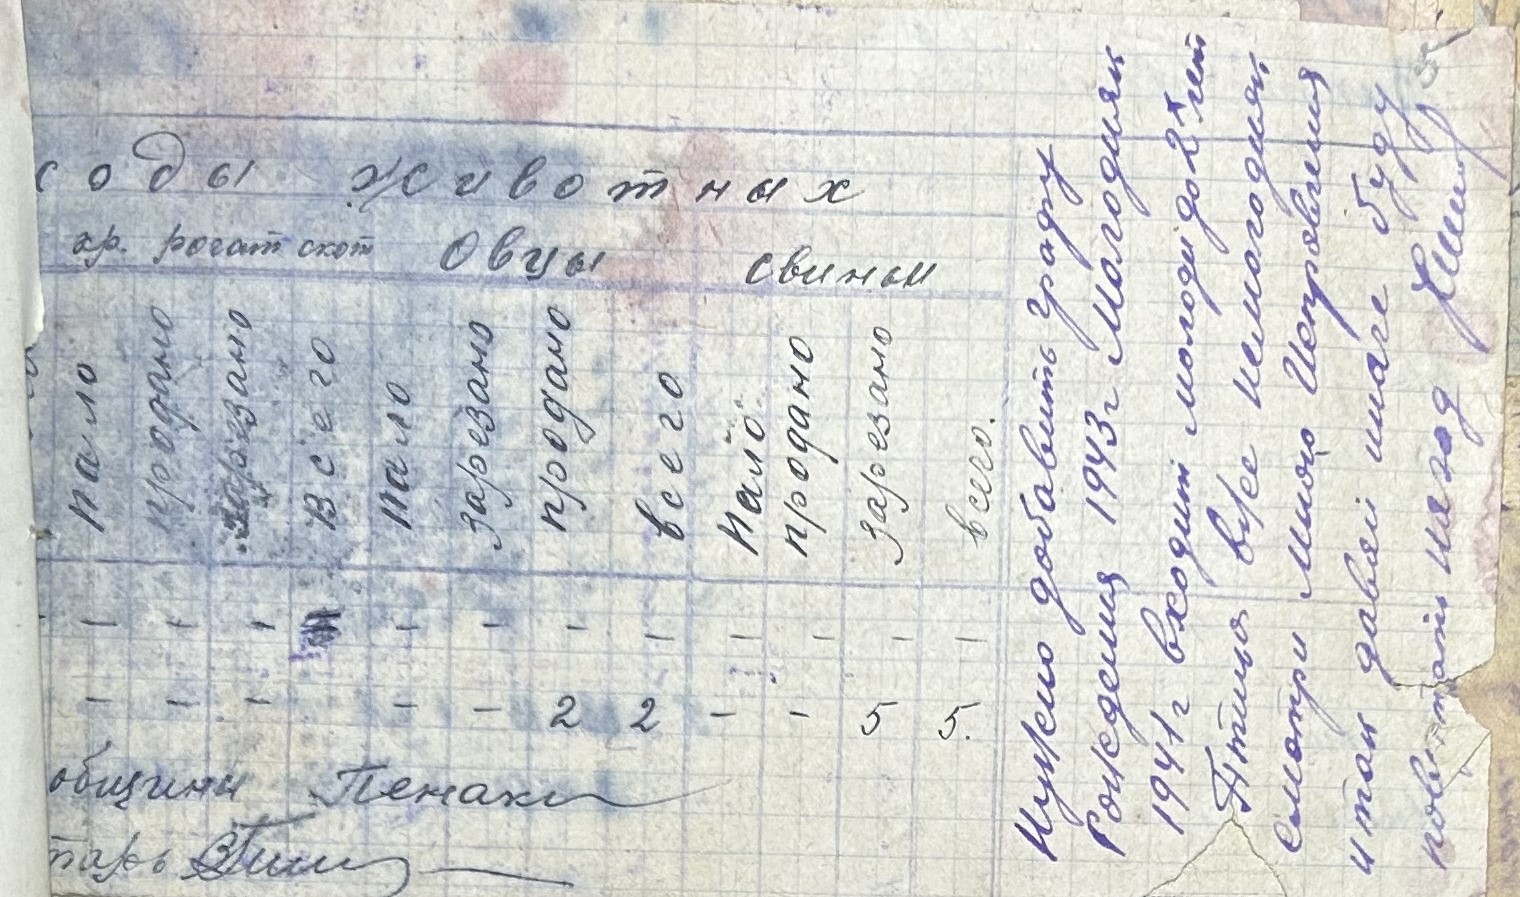 соды животных
кр. рогат скот Овцы свиньи
пало продано зарезано Всего пало зарезано продано всего пало продано зарезано всего.
- - - - - - - - - - -
- - - - - 2 2 - - 5 5.
общины Пенаки
тарь
Нужно добавить графу
Рождения 1943г Молодняк
1941г входит молоди до 2х лет
Птица вся немолодняк
Смотри мной Исправления
и так давай иначе буду
на год
5